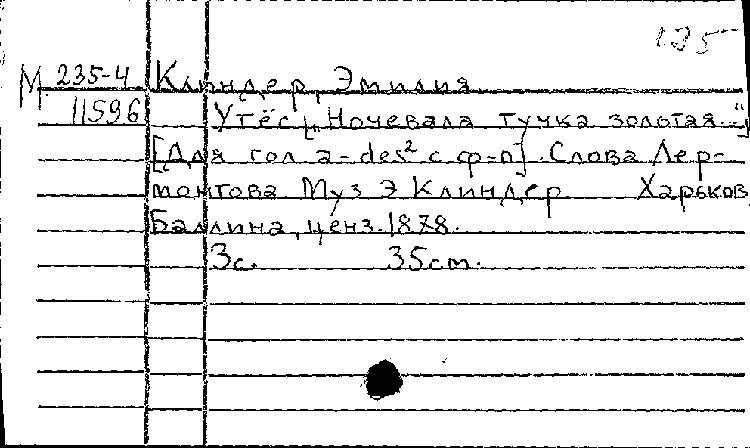 125
М 235-4 Клиндер, Эмилия
11596 Утёс „Ночевала тучка золотая..."
[Для гол a-des² с ф-п]. Слова Лер-
монтова Муз Э Клиндер Харьков
Баллина, ценз. 1878.
3с. 35см.